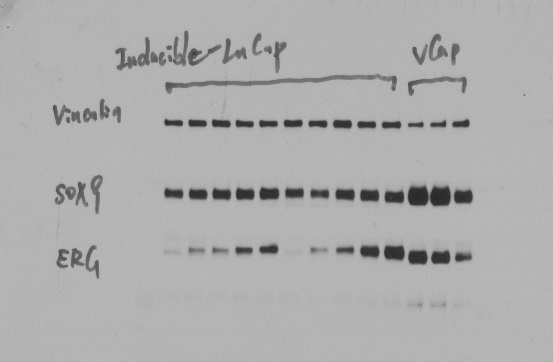 Inducible-LnCap
VCap
Vinculin
SOX9
ERG